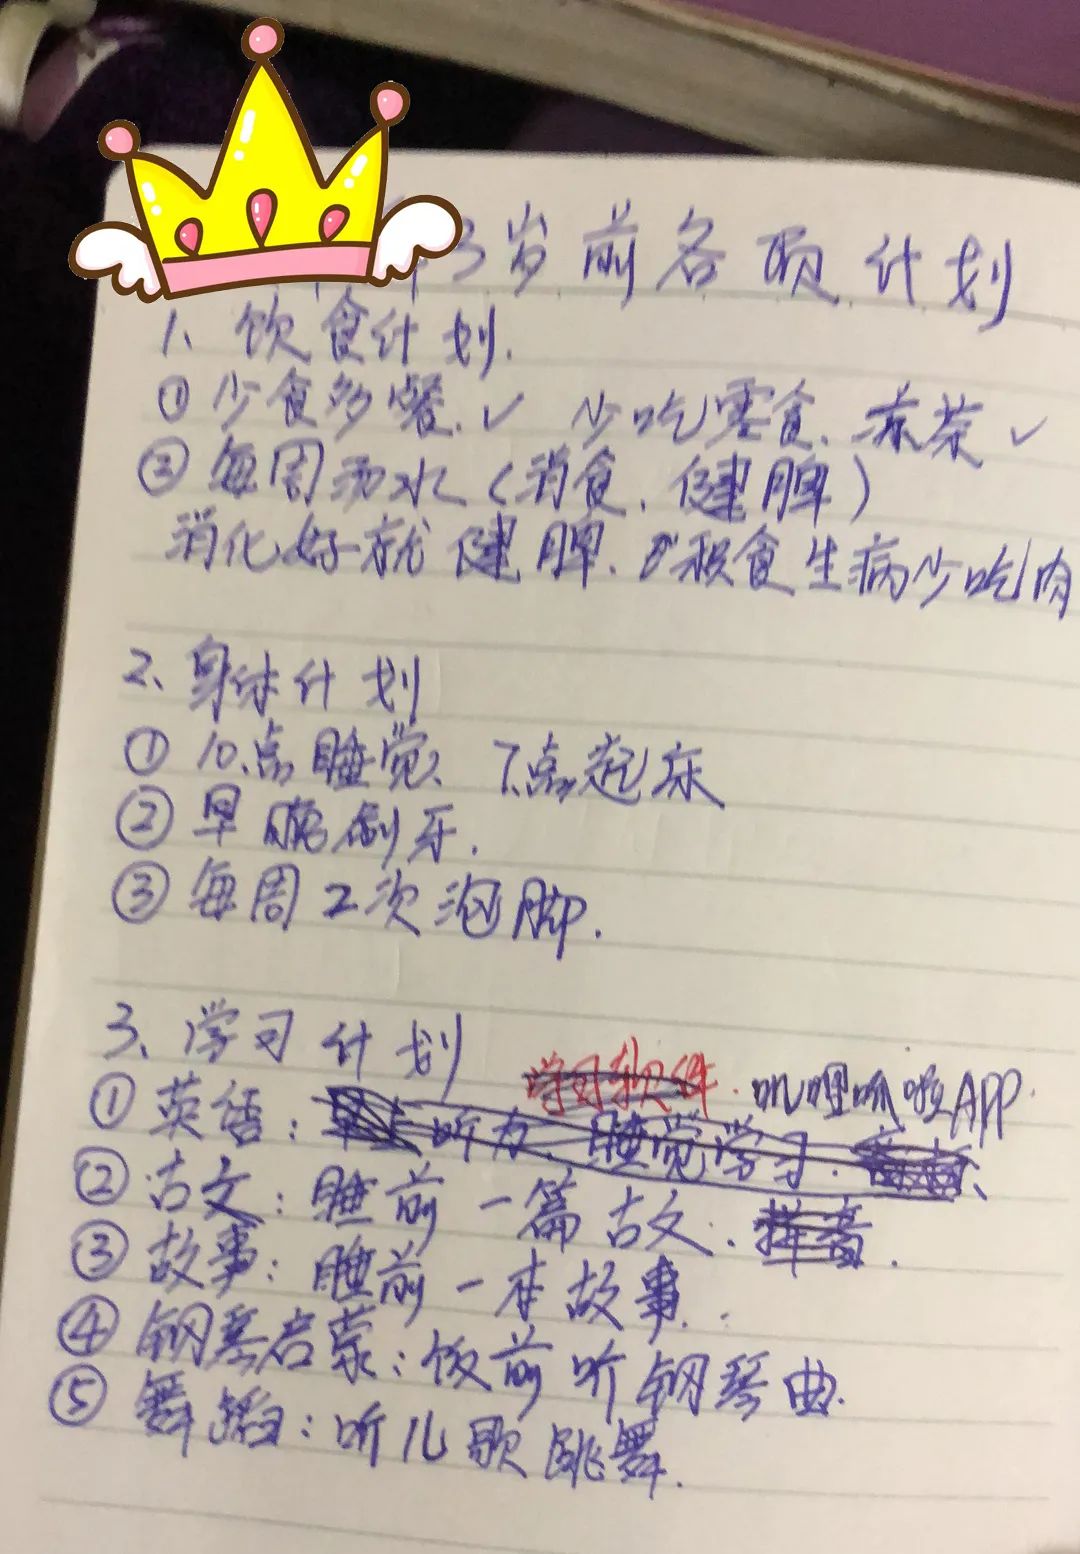 3岁前各项计划
1、饮食计划.
①少食多餐.✓ 少吃零食、冻菜✓
②每周汤水(消食、健脾)
消化好就健脾.积食生病少吃肉
2、身体计划
①10点睡觉、7点起床
②早晚刷牙.
③每周2次泡脚.
3、学习计划
学习软件. 叽哩呱啦APP.
①英语: 听力、睡觉学习.
②古文:睡前一篇古文.拼音.
③故事:睡前一本故事.
④钢琴启蒙:饭前听钢琴曲.
⑤舞蹈:听儿歌跳舞.